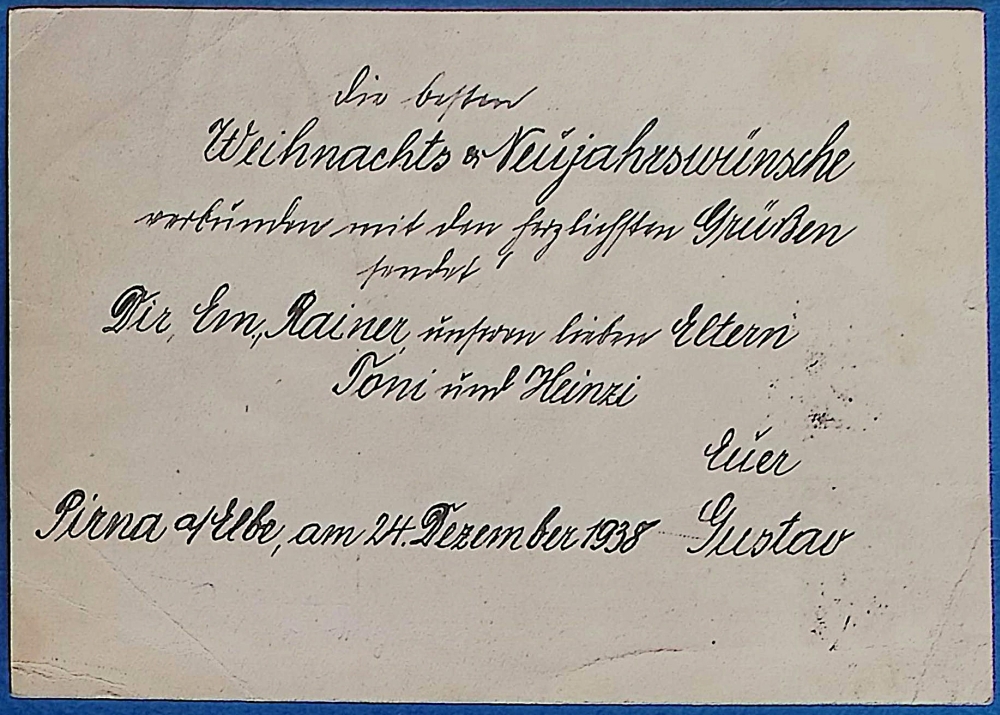 die besten
Weihnachts & Neujahrswünsche
verbunden mit den herzlichsten Grüßen
sendet
Dir, Em, Rainer, unseren lieben Eltern
Toni und Heinzi
Euer
Pirna a/Elbe, am 24. Dezember 1938 Gustav